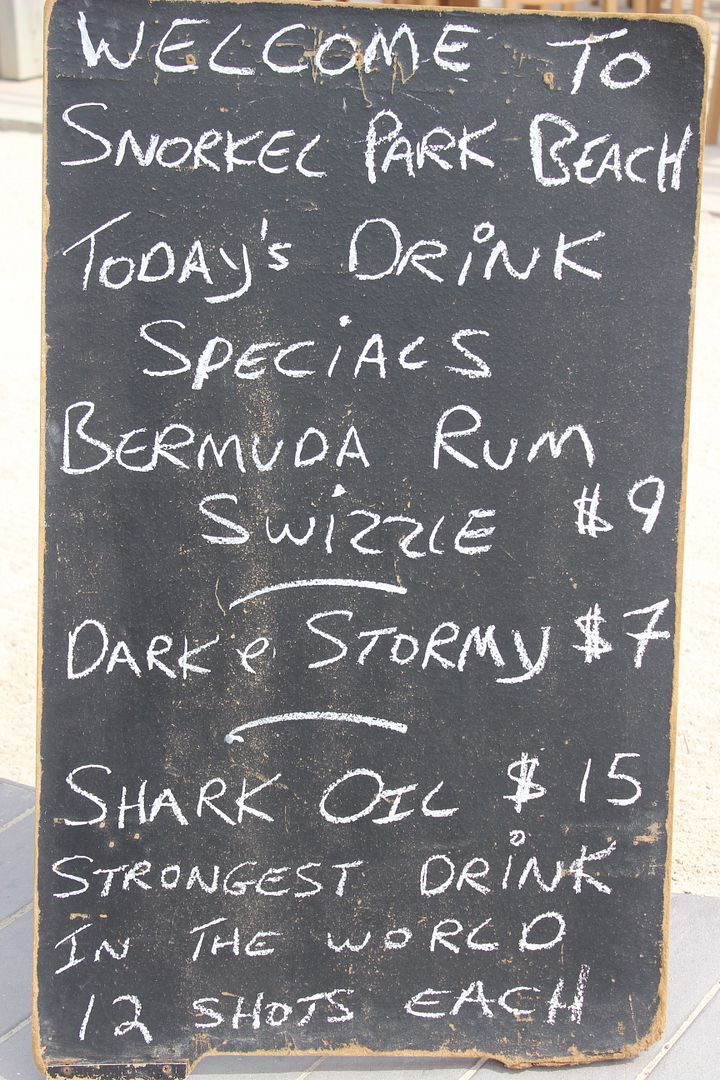 WELCOME TO
SNORKEL PARK BEACH
TODAY'S DRiNK
SPECiALS
BERMUDA RUM
SWiZZLE $9
DARK e STORMY $7
SHARK OIL $15
STRONGEST DRiNK
IN THE WORLD
12 SHOTS EACH